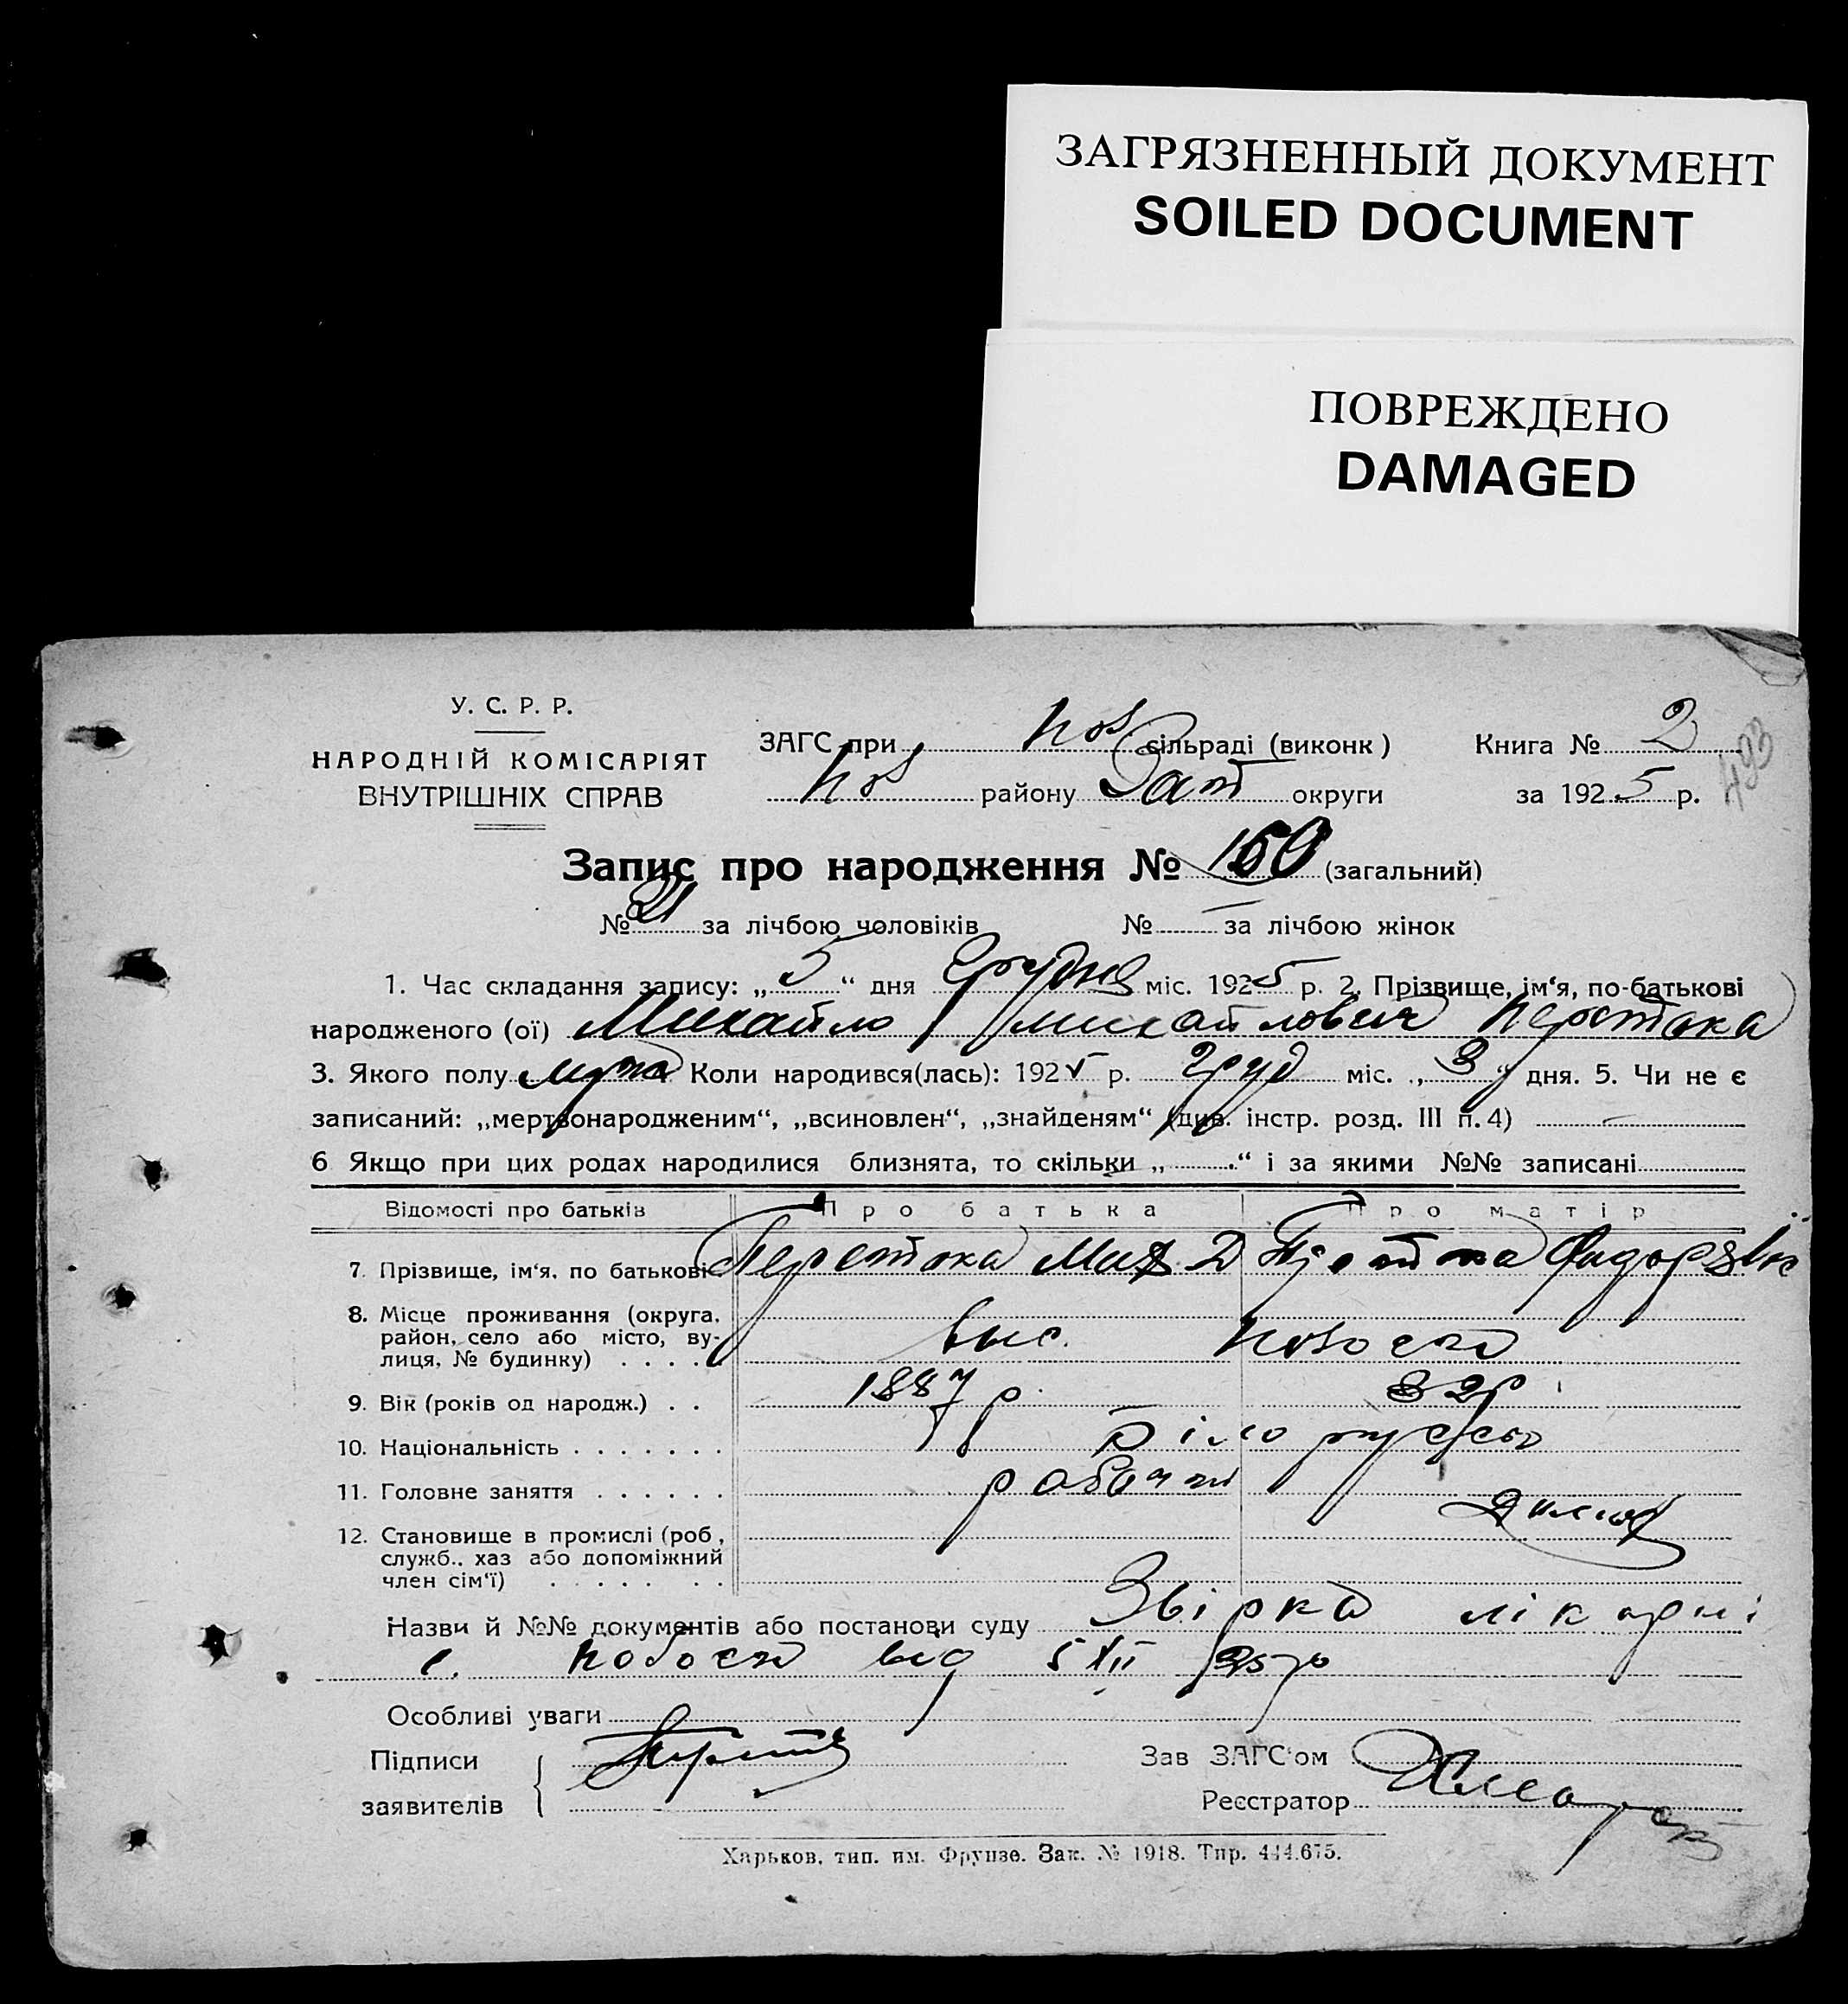 ЗАГРЯЗНЕННЫЙ ДОКУМЕНТ
SOILED DOCUMENT
ПОВРЕЖДЕНО
DAMAGED
У. С. Р. Р.
НАРОДНІЙ КОМІСАРІЯТ
ВНУТРІШНІХ СПРАВ
ЗАГС при Нов сільраді (виконк) Книга № 2
Нов району округи за 1925 р. 493
Запис про народження № 150 (загальний)
№ за лічбою чоловіків № — за лічбою жінок
1. Час складання запису: „5“ дня Грудня міс. 1925 р. 2. Прізвище, ім‘я, по-батькові
народженого (ої) Михайло Михайлович Перетока
3. Якого полу Коли народився(лась): 1925 р. Груд міс. „3“ дня. 5. Чи не є
записаний: „мертвонародженим“, „всиновлен“, „знайденям“ (див. інстр. розд. III п. 4) —
6 Якщо при цих родах народилися близнята, то скільки „.....“ і за якими №№ записані
Відомості про батьків Про батька Про матір
7. Прізвище, ім‘я, по батькові Перетока Мих Д
8. Місце проживання (округа,
район, село або місто, ву-
лиця, № будинку) . . . .
9. Вік (років од народж.) . . 1887 р. 32 р
10. Національність . . . . . . .
11. Головне заняття . . . . . .
12. Становище в промислі (роб,
служб., хаз або допоміжний
член сім‘ї) . . . . . . .
Назви й №№ документів або постанови суду лікарні
від 5 XII 25 р
Особливі уваги
Підписи
заявителів
Зав ЗАГС‘ом
Реєстратор
Харьков, тип. им. Фрунзе. Зак. № 1918. Тир. 444.675.